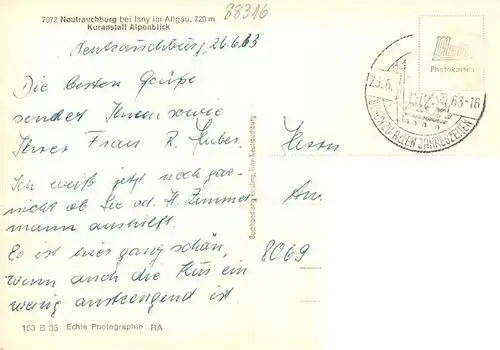 88316
7972 Neutrauchburg bei Isny im Allgäu, 720 m
Kuranstalt Alpenblick
Neutrauchburg, 26.6.63
Die besten Grüße
sendet Ihnen sowie
Ihrer Frau R. Huber.
Ich weiß jetzt noch gar
nicht ob Sie od. H. Zimmer
mann aushilft.
Es ist hier ganz schön,
wenn auch die Kur ein
wenig anstrengend ist
163 B 35 Echte Photographie RA
Photokarten
63-16
ZU ALLEN JAHRESZEITEN
Herrn
An.
8069